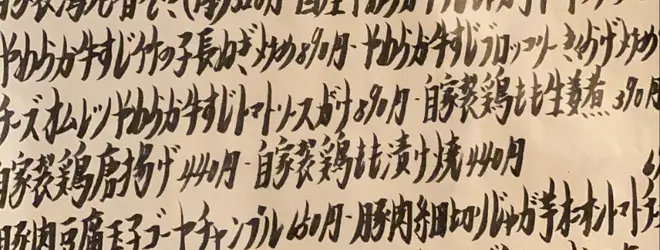 やわらか牛すじ竹の子長ねぎ炒め890円・やわらか牛すじブロッコリーきくらげ炒め
チーズオムレツやわらか牛すじトマトソースがけ890円・自家製鶏もも生姜煮390円
自家製鶏唐揚げ440円・自家製鶏もも漬け焼440円
豚肉豆腐玉子ゴーヤチャンプル650円・豚肉細切りじゃが芋ホオントマトチ